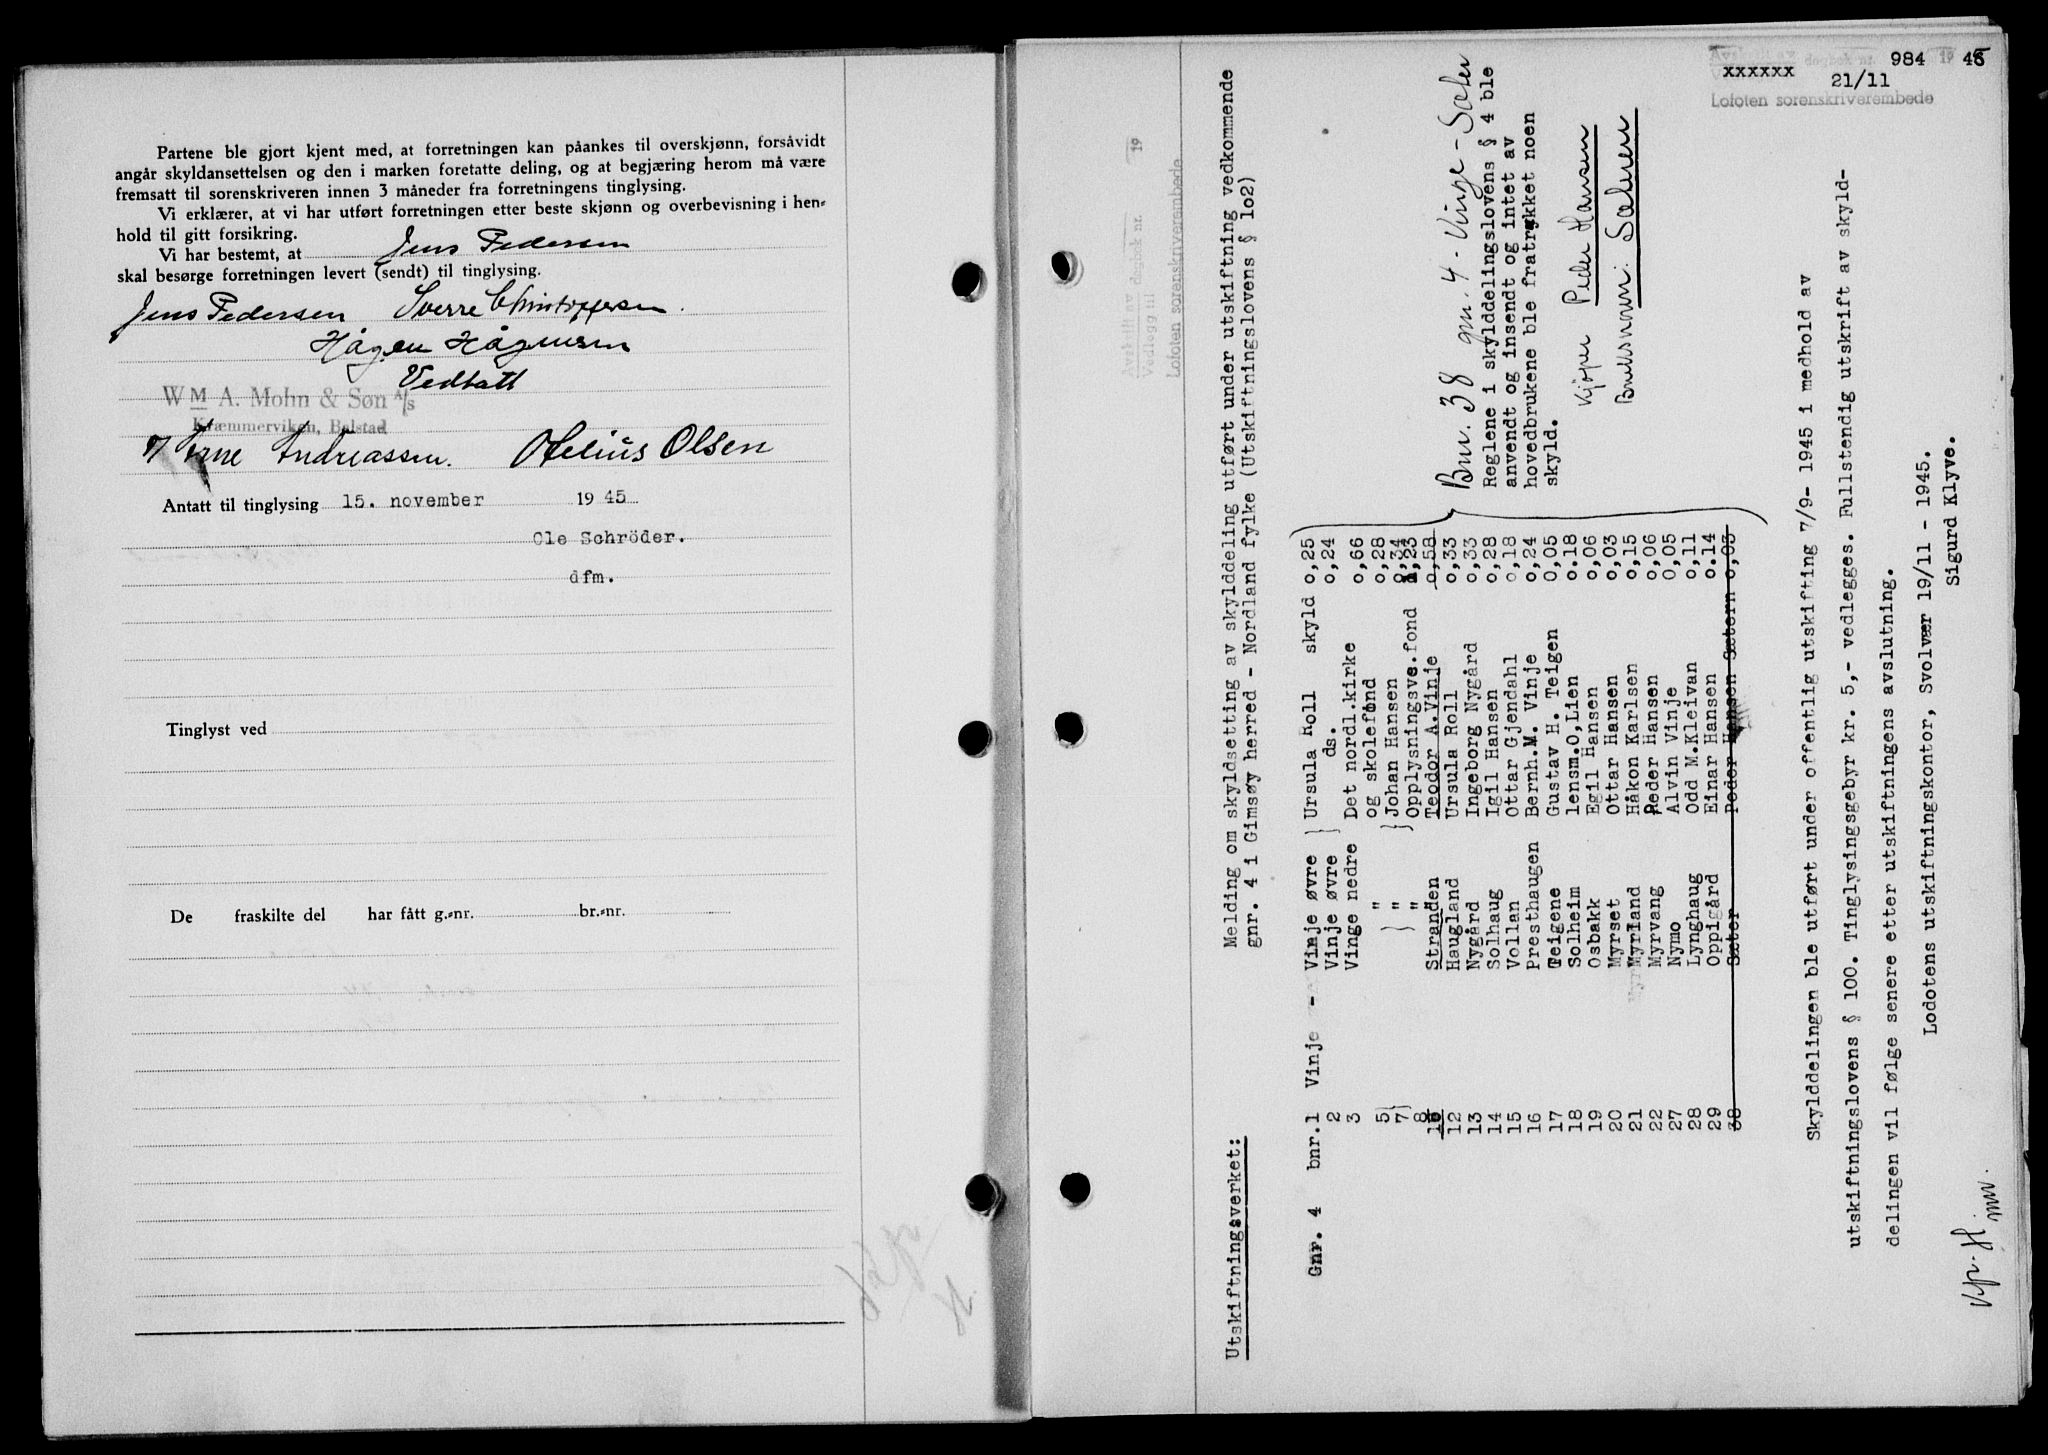 Partene ble gjort kjent med, at forretningen kan påankes til overskjønn, forsåvidt
angår skyldansettelsen og den i marken foretatte deling, og at begjæring herom må være
fremsatt til sorenskriveren innen 3 måneder fra forretningens tinglysing.
Vi erklærer, at vi har utført forretningen etter beste skjønn og overbevisning i hen-
hold til gitt forsikring.
Vi har bestemt, at Jens Pedersen
skal besørge forretningen levert (sendt) til tinglysing.
Jens Pedersen Sverre Christoffersen
Hågen Hågensen
Vedtatt
Wm A. Mohn & Søn A/s
Kræmmerviken, Balstad
Arne Andreassen. Olsen
Antatt til tinglysing 15. november 1945
Ole Schröder.
dfm.
Tinglyst ved
De fraskilte del har fått g.-nr. br.-nr.
984 1945
xxxxxx 21/11
Lofoten sorenskriverembede
Avskrift av dagbok nr. 19
Vedlegg til
Lofoten sorenskriverembede
Utskiftningsverket:
Melding om skyldsetting av skylddeling utført under utskiftning vedkommende
gnr. 4 i Gimsøy herred - Nordland fylke (Utskiftningslovens § 1o2)
Gnr. 4 bnr.1 Vinje - Vinje øvre Ursula Roll skyld 0,25
2 Vinje øvre ds. 0,24
3 Vinge nedre Det nordl.kirke
og skolefond 0,66
5 " Johan Hansen 0,28
7 " 0,34
8 " Opplysningsve.fond 1,23
10 Stranden Teodor A.Vinje 0,58
12 Haugland Ursula Roll 0,33
13 Nygård Ingeborg Nygård 0,33
14 Solhaug Igil Hansen 0,28
15 Vollan Ottar Gjendahl 0,18
16 Presthaugen Bernh.M. Vinje 0,24
17 Teigene Gustav H. Teigen 0,05
18 Solheim lensm.O,Lien 0.18
19 Osbakk Egil Hansen 0,06
20 Myrset Ottar Hansen 0,03
21 Myrland Håkon Karlsen 0,15
22 Myrvang Peder Hansen 0,06
27 Nymo Alvin Vinje 0,05
28 Lynghaug Odd M.Kleivan 0,11
29 Oppigård Einar Hansen 0.14
38 Sæter Peder Hansen Sætern 0,03
Bnr. 38 gnr. 4 - Vinge - Sæter
Reglene i skylddelingslovens § 4 ble
anvendt og insendt og intet av
hovedbrukene ble fratrykket noen
skyld.
Kjøper Peder Hansen
Bruksnavn: Sæteren
Skylddelingen ble utført under offentlig utskifting 7/9- 1945 i medhold av
utskiftningslovens § 100. Tinglysingsgebyr kr. 5,- vedlegges. Fullstendig utskrift av skyld-
delingen vil følge senere etter utskiftningens avslutning.
Lodotens utskiftningskontor, Svolvær 19/11 - 1945.
Sigurd Klyve.